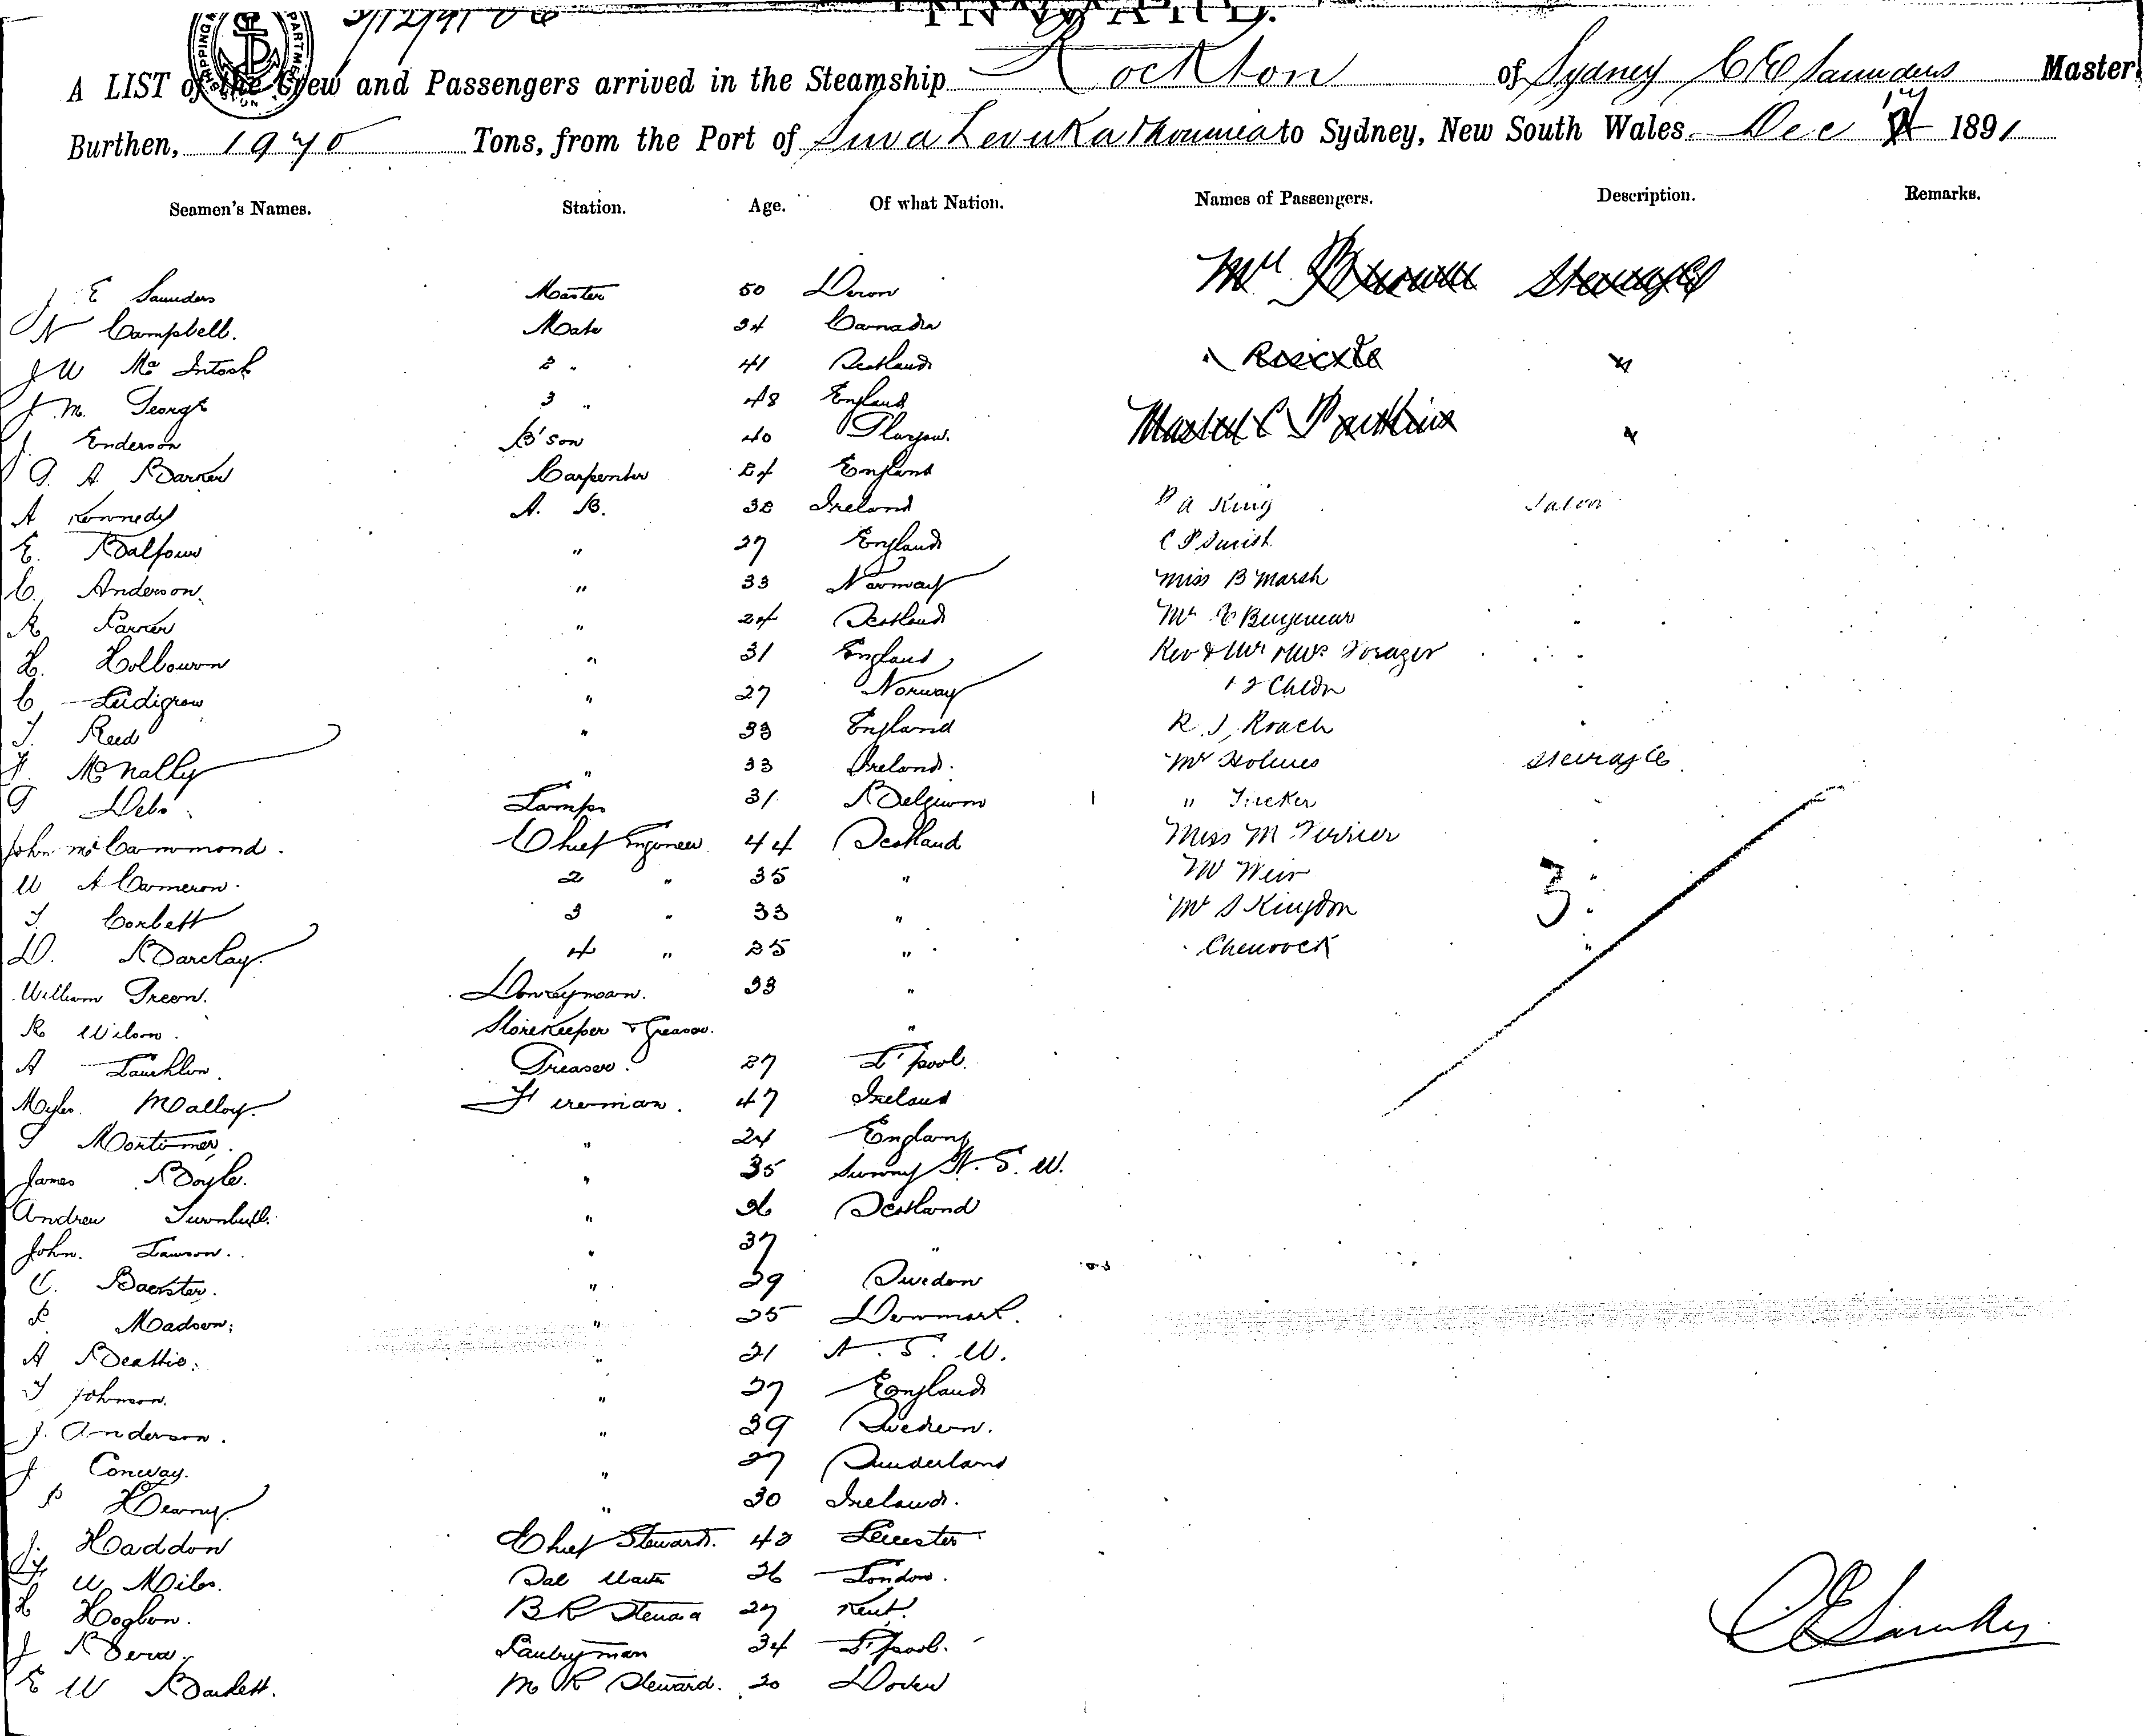 3/12/91
INWARD.
A LIST of the Crew and Passengers arrived in the Steamship Rockton of Sydney C E Saunders Master,
Burthen, 1970 Tons, from the Port of Suva Levuka Noumea to Sydney, New South Wales. Dec 17 1891
Seamen's Names. Station. Age. Of what Nation. Names of Passengers. Description. Remarks.
J E Saunders Master 50 Devon Mr Brown Steerage
N Campbell. Mate 34 Canada
J W Mc Intosh 2 " 41 Scotland " "
J. M. George 3 " 48 England Master C "
J. Enderson B'son 40 Glasgow.
G. A. Barker Carpenter 24 England
A Kennedy A. B. 38 Ireland A King Saloon
E. Balfour " 27 England C P
C. Anderson. " 33 Norway Miss B Marsh
R Parker " 24 Scotland Mr E "
H. Holbourn " 31 England Rev & Mrs Frazer
C Ludigrow " 27 Norway & 2 Chldn
J. Reed " 33 England R. J. Roach
F. McNally " 33 Ireland. Mr Holmes Steerage
G Debo Lamps 31 Belgium " Tucker
John McCammond. Chief Engineer 44 Scotland Miss M Perrier
W A Cameron. 2 " 35 " W Weir "
J. Corbett 3 " 33 " Mr S Kingdon 3
D. Barclay. 4 " 25 " Chenoock "
William Green. Donkeyman. 33 "
R Wilson. Storekeeper & Greaser. "
A Lauchlon. Greaser. 27 L'pool.
Myles Malloy. Fireman. 47 Ireland
G Mortimer. " 24 England
James Boyle. " 35 N. S. W.
Andrew Turnbull. " 26 Scotland
John. Lawson. " 37 "
C. Backster. " 29 Sweden
P Madsen; " 25 Denmark.
A Beattie. " 21 N. S. W.
J Johnson. " 27 England
J. Anderson. " 39 Sweden.
J Conway. " 27 Sunderland
P Kearny. " 30 Ireland.
J. Haddon Chief Steward. 40 Leicester
F. W Miles. Sal Waiter 26 London.
H Hogben. B R Steward 27 Kent.
J Pantryman 34 L'pool.
E W Bartlett. M R Steward. 20 Dover
C E Saunders